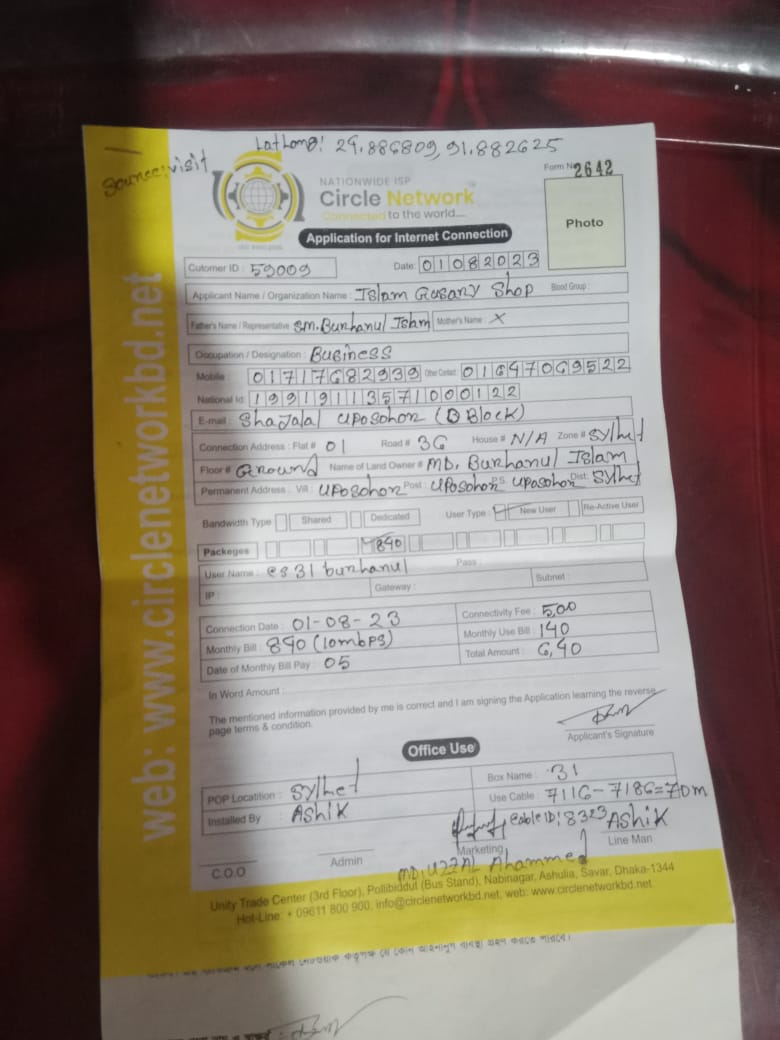 LatLong: 24.886809, 91.882625
Source: visit
NATIONWIDE ISP
Circle Network
Connected to the world....
Form No 2642
Photo
Application for Internet Connection
Cutomer ID : 59009 Date: 01082023
Applicant Name / Organization Name : Islam Gosary Shop Blood Group :
Father's Name / Representative SM. Burhanul Islam Mother's Name : X
Occupation / Designation : Business
Mobile : 01717682939 Other Contact : 01647069522
National Id: 19919113571000122
E-mail : Shajalal Uposohor (D Block)
Connection Address : Flat # 01 Road # 36 House # N/A Zone # Sylhet
Floor # Ground Name of Land Owner # MD. Burhanul Islam
Permanent Address : Vill : Uposohor Post : Uposohor P.S Uposohor Dist: Sylhet
Bandwidth Type Shared Dedicated User Type New User Re-Active User
Packeges 840
User Name : cs31burhanul Pass :
IP : Gateway : Subnet :
Connection Date : 01-08-23 Connectivity Fee : 500
Monthly Bill : 840 (10mbps) Monthly Use Bill : 140
Date of Monthly Bill Pay : 05 Total Amount : 6,40
In Word Amount :
The mentioned information provided by me is correct and I am signing the Application learning the reverse
page terms & condition.
Applicant's Signature
Office Use
POP Locatition : Sylhet Box Name : 31
Installed By Ashik Use Cable : 7116-7186=70m
Cable ID: 8323 Ashik
C.O.O Admin Marketing Line Man
MD. Uzzal Ahammed
Unity Trade Center (3rd Floor), Pollibiddut (Bus Stand), Nabinagar, Ashulia, Savar, Dhaka-1344
Hot-Line: + 09611 800 900, info@circlenetworkbd.net, web: www.circlenetworkbd.net
web: www.circlenetworkbd.net